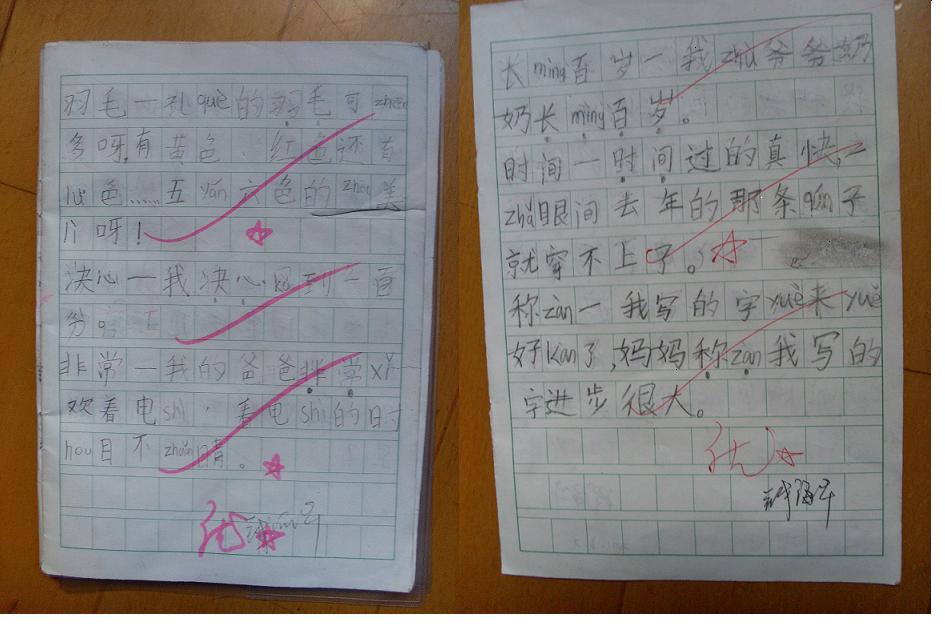 羽毛一孔què的羽毛可zhēn
多呀,有黄色、红色还有
lǜ色……五yán六色的zhēn美
丽呀!
决心一我决心图到一百
分。
非常一我的爸爸非常xǐ
欢看电shì,看电shì的时
hou目不zhuǎn睛。
优
长mìng百岁一我zhù爷爷奶
奶长mìng百岁。
时间一时间过的真快,一
zhǎ眼间去年的那条qún子
就穿不上了。
称zàn一我写的字yuè来yuè
好kàn了,妈妈称zàn我写的
字进步很大。
优